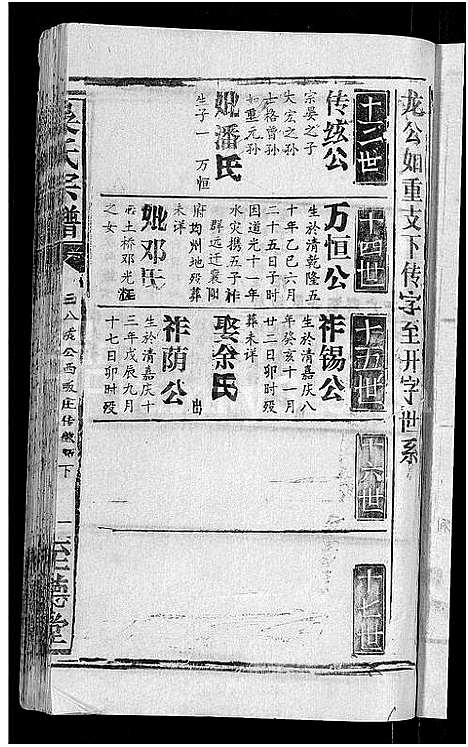 龙公如重支下传字至开字世系
十三世
传绂公
宗晏之子
大宏之孙
士格曾孙
如重元孙
妣潘氏
生子一 万恒
十四世
万恒公
生於清乾隆五
十年乙巳六月
二十五日子时
因道光十一年
水灾携五子祚
群远迁襄阳
府均州地殁葬
未详
妣邓氏
土桥邓光
之女
十五世
祚锡公
生於清嘉庆八
年癸亥十一月
廿二日卯时殁
葬未详
娶余氏
出
祚荫公
生於清嘉庆十
三年戊辰九月
十七日卯时殁
十六世
十七世
吴氏宗谱
下
至德堂